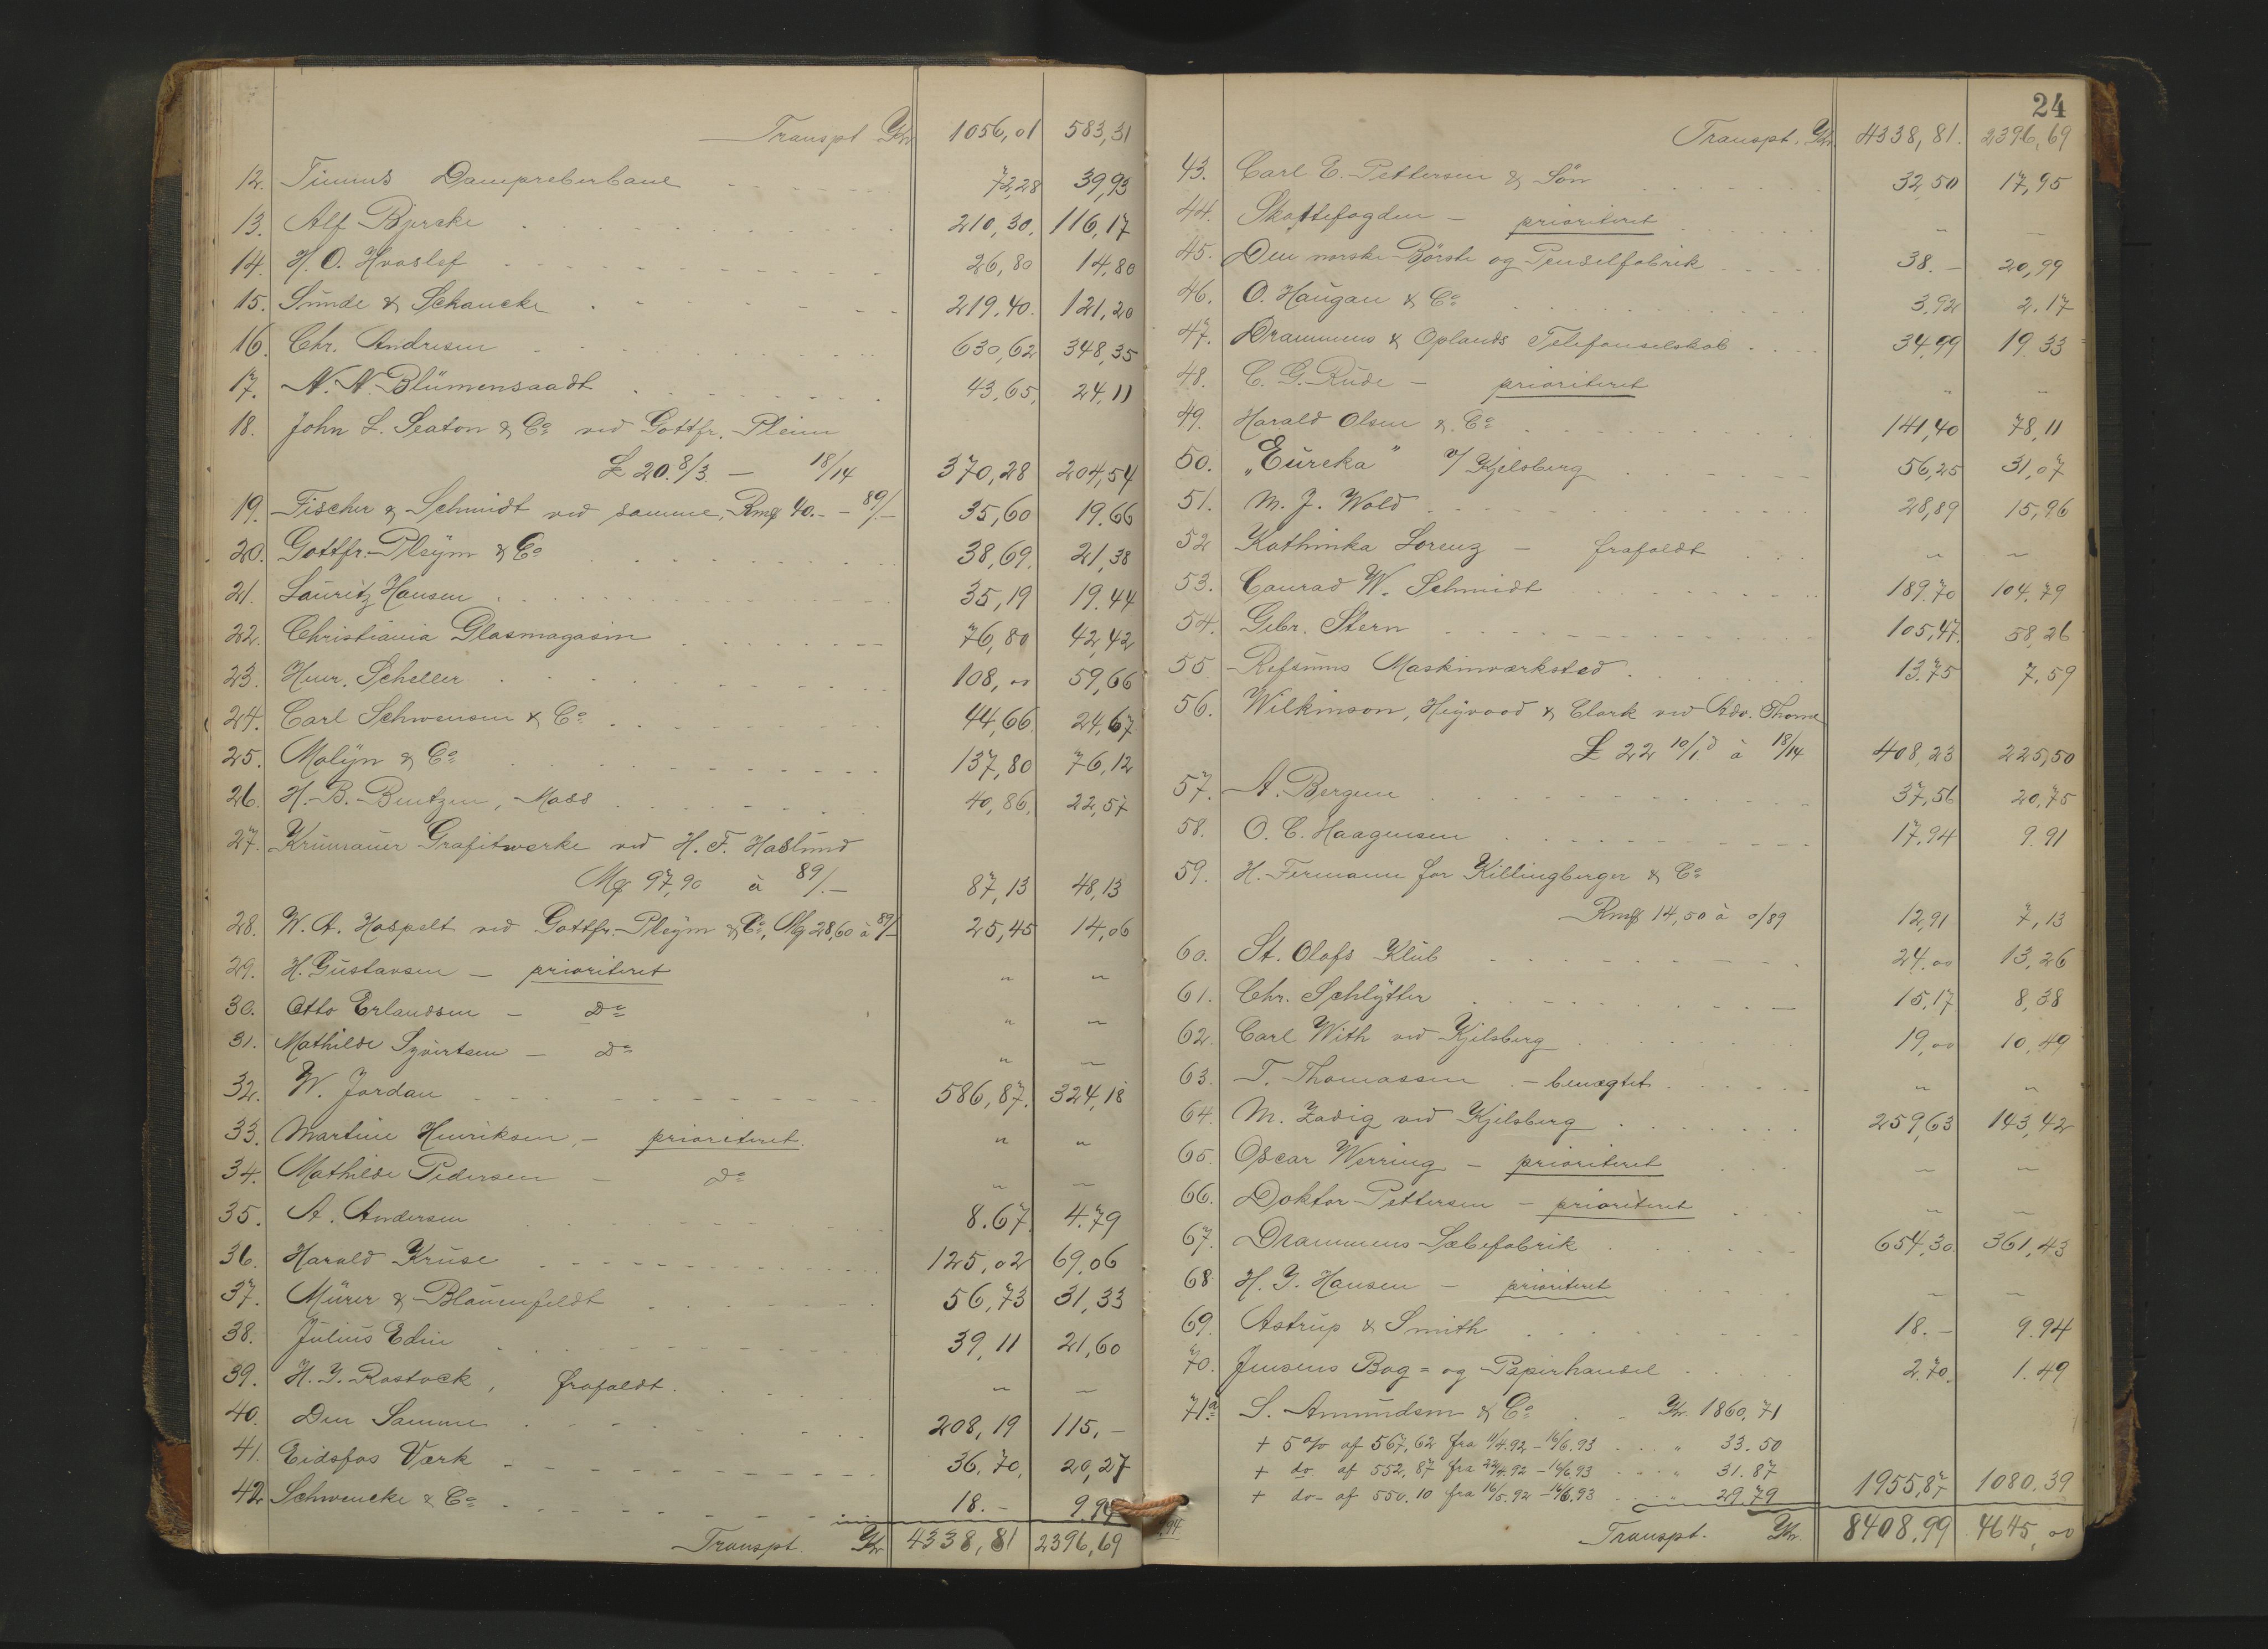 Transpt Kr 1056,01 583,31
12. Timms Dampreberbane 72,28 39,93
13. Alf Bjercke 210,30. 116,17
14. H. O. Hvoslef 26,80 14,80
15. Sunde & Schancke 219.40. 121,20
16. Chr. Andresen 630,62 348,35
17. N. N. Blumensaadt 43,65, 24,11
18. John L. Seaton & Co ved Gottfr. Pleim
£ 20.8/3. — 18/14 370,28 204,54
19. Fischer & Schmidt ved samme, Rmk 40.- - 89/- 35,60 19.66
20. Gottfr. Pleym & Co 38,69. 21,38
21. Lauritz Hansen 35,19 19.44
22. Christiania Glasmagasin 76,80 42,42
23. Henr. Scheller 108,00 59,66
24. Carl Schwensen & Co 44,66 24,67
25. Molyn & Co 137,80 76,12
26. H. B. Bentzen, Moss 40,86. 22,57
27. Krumauer Grafitwerke ved H. F. Haslund
Mk 97,90 à 89/.- 87,13 48,13
28. W. A. Hospelt ved Gottfr. Pleym & Co, Mk 28,60 à 89/- 25,45 14,06
29. H. Gustavsen — prioriteret " "
30. Otto Erlandsen — Do " "
31. Mathilde Syvertsen — Do " "
32. W. Jordan 586,87. 324,18
33. Martine Henriksen, — prioriteret. " "
34. Mathilde Pedersen — Do " "
35. A. Andersen 8.67. 4.79
36. Harald Kruse 125,02 69,06
37. Mürer & Blauenfeldt 56,73 31,33
38. Julius Edin 39,11 21,60
39. H. J. Rostock, frafaldt. " "
40. Den Samme 208,19 115,-
41. Eidsfos Værk 36,70, 20,27
42. Schwencke & Co 18.- 9.94
Transpt Kr 4338,81 2396,69
24
Transpt. Kr. 4338,81. 2396,69
43. Carl E. Pettersen & Sön 32,50 17,95
44. Skattefogden — prioriteret " "
45. Den norske Börste og Penselfabrik 38.- 20,99
46. O. Haugan & Co 3,92 2.17
47. Drammens & Oplands Telefonselskab 34,99 19.33
48. C. G. Rude — prioriteret " "
49. Harald Olsen & Co 141,40 78,11
50. „Eureka" v/ Kjelsberg 56,25 31,07
51. M. J. Wold 28,89 15,96
52 Kathinka Lorenz — frafaldt " "
53. Conrad W. Schmidt 189.70 104.79
54. Gebr. Stern 105,47. 58,26
55 Refsums Maskinværksted. 13.75 7.59
56. Wilkinson, Heywood & Clark ved Adv. Thome
£ 22 10/1d à 18/14 408,23 225,50
57. A. Bergene 37,56 20,75
58. O. C. Haagensen 17,94 9.91
59. H. Fermann for Killingberger & Co
Rmk 14,50 à o/89 12,91 7,13
60. St. Olafs Klub 24.00 13,26
61. Chr. Schlytter 15,17 8,38
62. Carl With ved Kjelsberg 19,00 10,49
63. T. Thomassen. — benægtet " "
64. M. Zadig ved Kjelsberg 259,63 143,42
65. Oscar Werring — prioriteret " "
66. Doktor Pettersen — prioriteret " "
67. Drammens Sæbefabrik 654,30. 361,43
68 H. J. Hansen — prioriteret " "
69. Astrup & Smith 18.- 9.94
70. Jensens Bog= og Papirhandel 2.70. 1.49
71a S. Amundsen & Co Kr. 1860,71
+ 5 o/o af 567,62 fra 11/4.92 - 16/6.93 " 33.50
+ do af 552,87 fra 22/4.92 - 16/6.93 " 31.87
+ do- af 550.10 fra 16/5.92 - 16/6.93 " 29.79 1955,87 1080.39
Transpt. Kr. 8408,99 4645,00